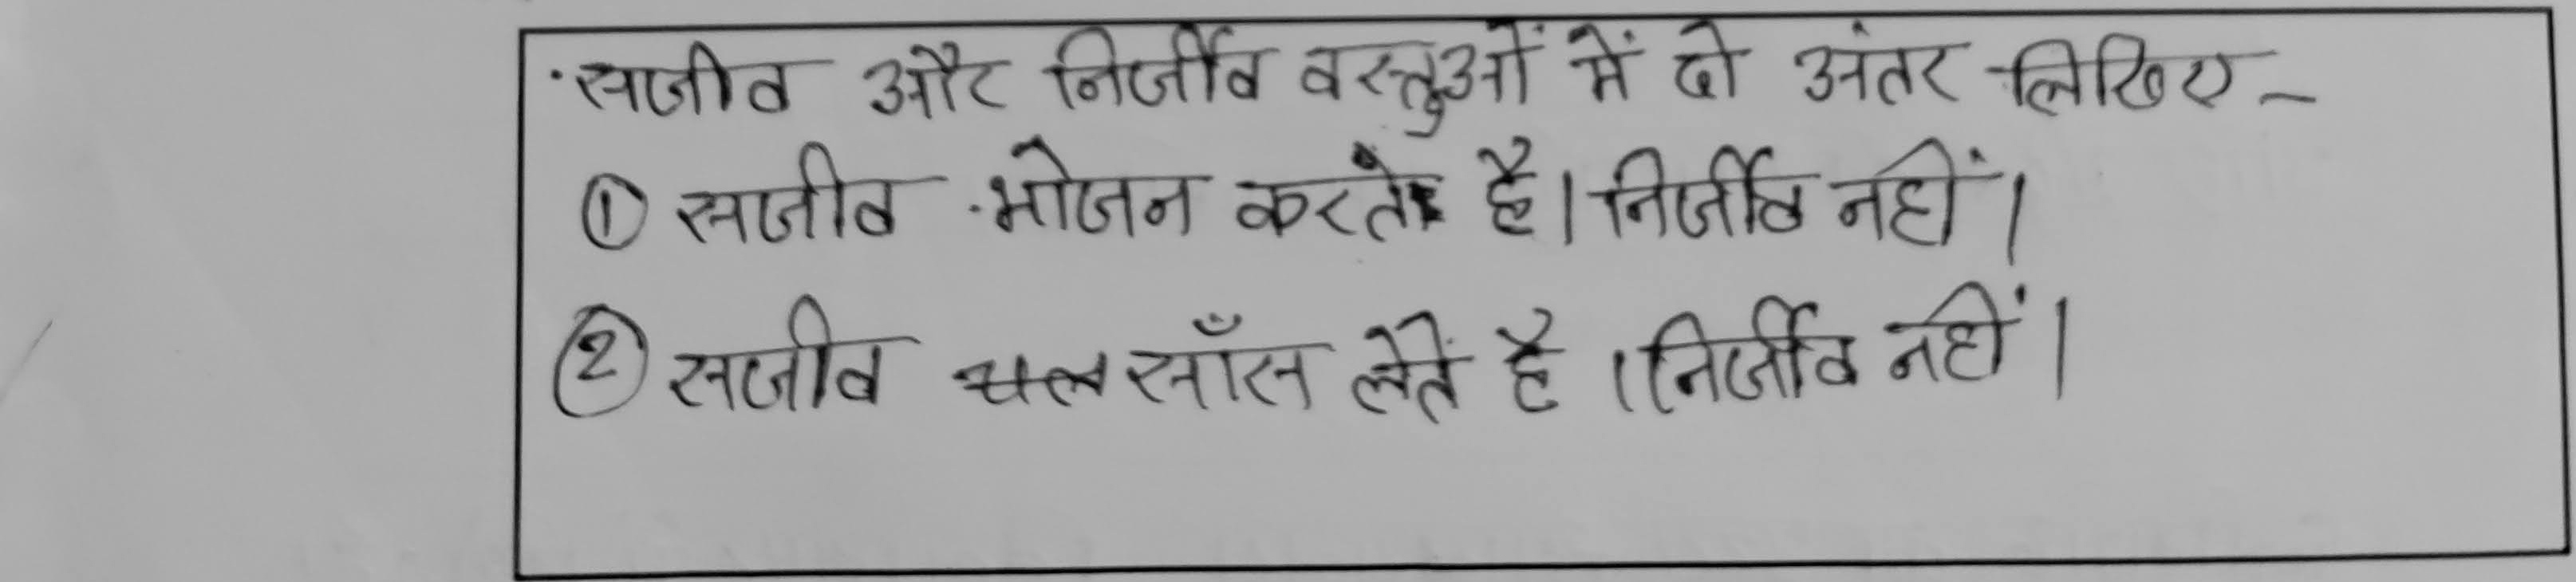 सजीव और निर्जीव वस्तुओं में दो अंतर लिखिए -
① सजीव भोजन करते है। निर्जीव नहीं।
② सजीव साँस लेतें है। निर्जीव नहीं।